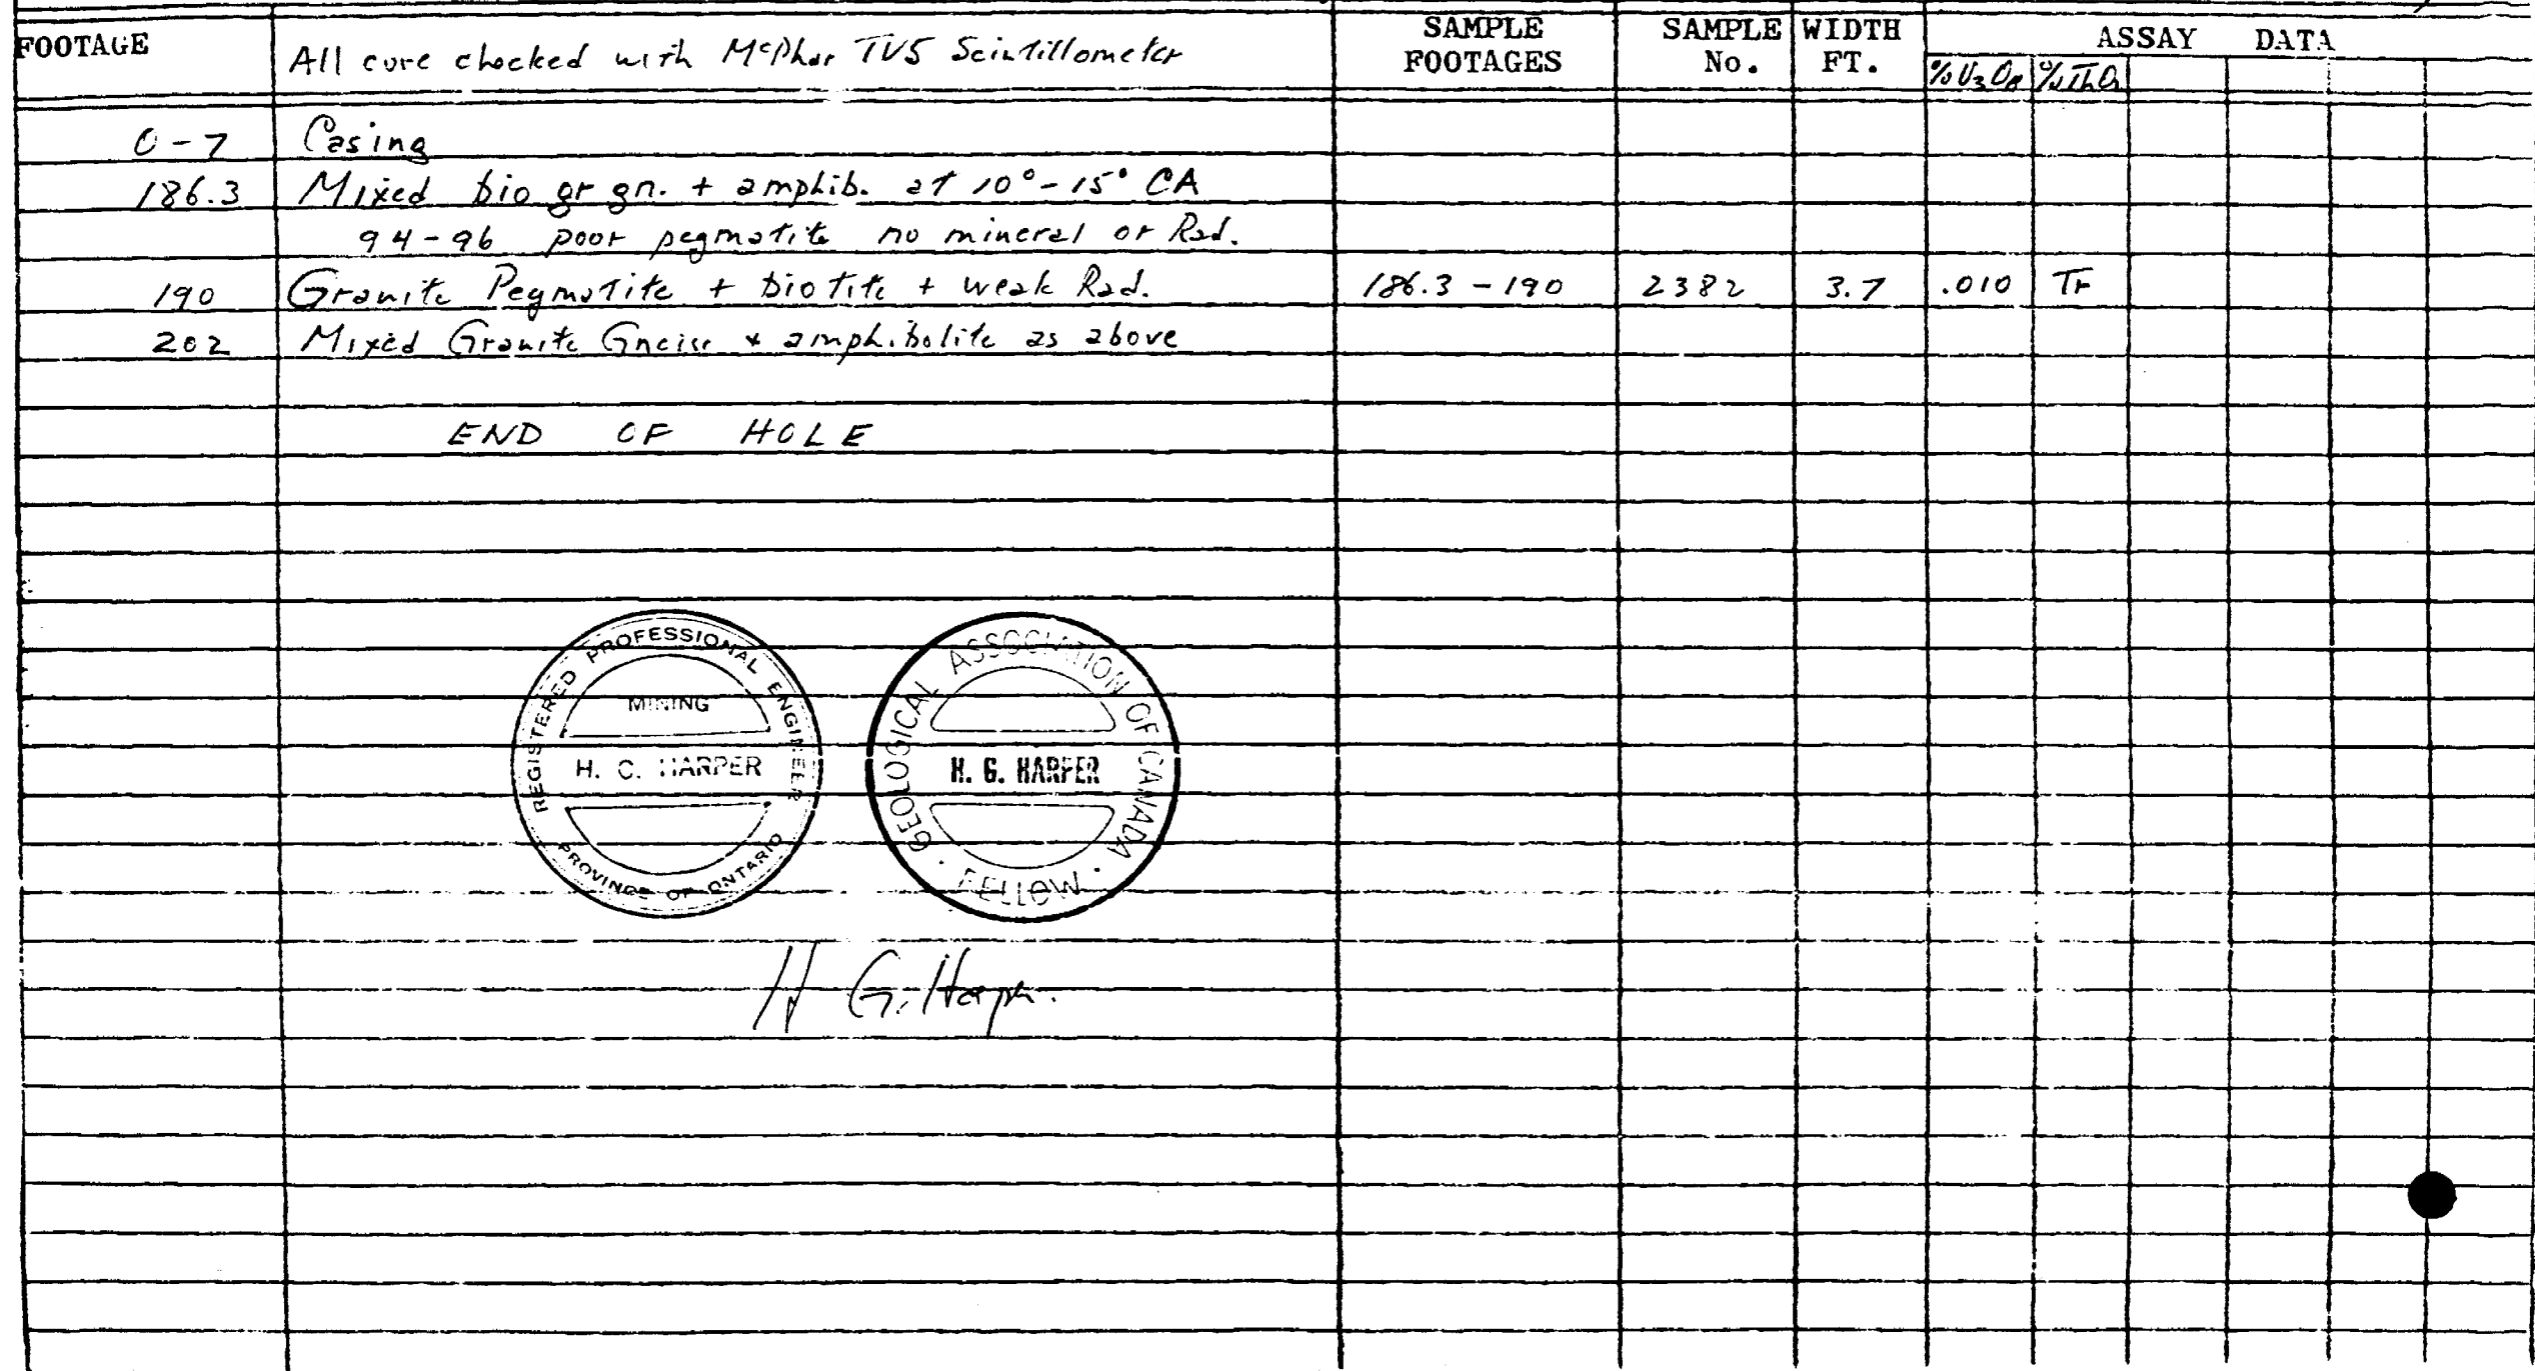 FOOTAGE All core checked with McPhar TV5 Scintillometer SAMPLE FOOTAGES SAMPLE No. WIDTH FT. ASSAY DATA
%U3O8 %ThO2
0-7 Casing
186.3 Mixed bio gr gn. + amphib. at 10°-15° CA
94-96 poor pegmatite no mineral or Rad.
190 Granite Pegmatite + biotite + weak Rad. 186.3-190 2382 3.7 .010 Tr
202 Mixed Granite Gneiss + amphibolite as above
END OF HOLE
REGISTERED PROFESSIONAL ENGINEER
MINING
H. G. HARPER
PROVINCE OF ONTARIO
GEOLOGICAL ASSOCIATION OF CANADA
H. G. HARPER
· FELLOW ·
H G. Harper.